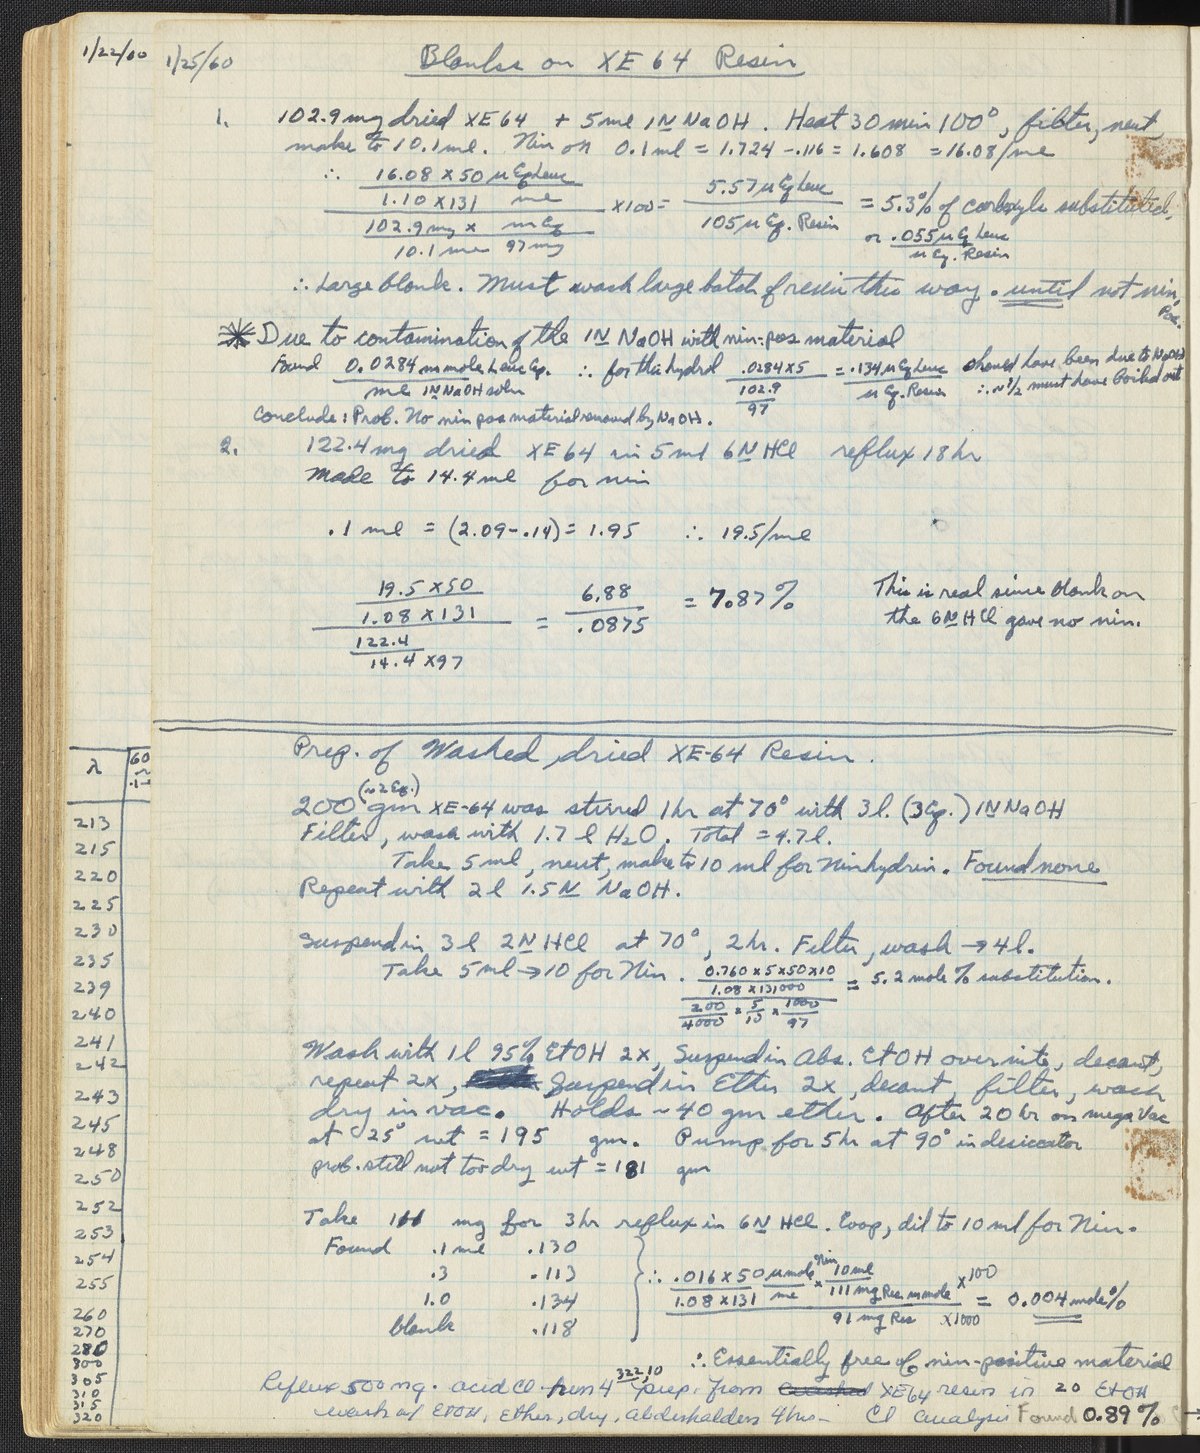 1/22/60
1/25/60
Blanks on XE 64 Resin
1. 102.9 mg dried XE 64 + 5 ml 1N NaOH. Heat 30 min 100°, filter, neut
make to 10.1 ml. Nin on 0.1 ml = 1.724 - .116 = 1.608 = 16.08/ml
∴ 16.08 x 50 µ Eq Leuc / 1.10 x 131 ml / 102.9 mg x m Eq / 10.1 ml 97 mg x 100 = 5.57 µ Eq Leuc / 105 µ Eq. Resin = 5.3% of carboxyls substituted,
or .055 µ Eq Leuc / µ Eq. Resin
∴ Large blank. Must wash large batch of resin this way. until not nin,
Pos.
✳ Due to contamination of the 1N NaOH with nin-pos material
Found 0.0284 m mole Leuc Eq. / ml 1N NaOH soln ∴ for this hydrol .0284 x 5 / 102.9 / 97 = .134 µ Eq Leuc / µ Eq. Resin should have been due to NaOH
∴ ~ 1/2 must have boiled out
Conclude: Prob. No nin pos material removed by NaOH.
2. 122.4 mg dried XE 64 in 5 ml 6N HCl reflux 18 hr
Made to 14.4 ml for nin
.1 ml = (2.09 - .14) = 1.95 ∴ 19.5/ml
19.5 x 50 / 1.08 x 131 / 122.4 / 14.4 x 97 = 6.88 / .0875 = 7.87%
This is real since blank on
the 6N HCl gave no nin.
Prep. of Washed dried XE-64 Resin.
(~2 Eq.)
200 gm XE-64 was stirred 1 hr at 70° with 3 l. (3 Eq.) 1N NaOH
Filter, wash with 1.7 l H2O. Total = 4.7 l.
Take 5 ml, neut, make to 10 ml for Ninhydrin. Found none
Repeat with 2 l 1.5 N NaOH.
Suspend in 3 l 2N HCl at 70°, 2 hr. Filter, wash → 4 l.
Take 5 ml → 10 for Nin. 0.760 x 5 x 50 x 10 / 1.08 x 131000 / 200 / 4000 x 5 / 10 x 1000 / 97 = 5.2 mole % substitution.
Wash with 1 l 95% EtOH 2x, Suspend in Abs. EtOH overnite, decant,
repeat 2x, Suspend in Ether 2x, decant, filter, wash
dry in vac. Holds ~ 40 gm ether. After 20 hr on mega Vac
at 25° wt = 195 gm. Pump for 5 hr at 90° in desiccator
prob. still not too dry wt = 181 gm
Take 111 mg for 3 hr reflux in 6N HCl. Evap, dil to 10 ml for Nin.
Found .1 ml .130
.3 .113
1.0 .134
blank .118
∴ .016 x 50 µ mole Nin / 1.08 x 131 ml x 10 ml / 111 mg Res m mole / 91 mg Res x 1000 x 100 = 0.004 mole %
∴ Essentially free of nin-positive material
322,10
Reflux 500 mg. acid Cl from 4 prep. from XE64 resin in 20 EtOH
wash w/ EtOH, Ether, dry, Abderhalden 4 hrs - Cl analysis Found 0.89%
λ
60
213
215
220
225
230
235
239
240
241
242
243
245
248
250
252
253
254
255
260
270
280
300
305
310
315
320